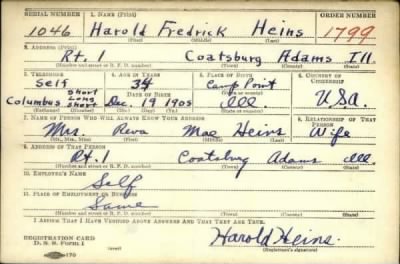 SERIAL NUMBER 1. NAME (Print) ORDER NUMBER
1046 Harold Fredrick Heins 1799
(First) (Middle) (Last)
2. ADDRESS (Print)
Rt. 1 Coatsburg Adams Ill.
(Number and street or R. F. D. number) (Town) (County) (State)
3. TELEPHONE 4. AGE IN YEARS 5. PLACE OF BIRTH 6. COUNTRY OF CITIZENSHIP
Self 34 Camp Point
Columbus Short Long Short DATE OF BIRTH (Town or county)
Dec. 19 1905 Ill U.S.A.
(Exchange) (Number) (Mo.) (Day) (Yr.) (State or country)
7. NAME OF PERSON WHO WILL ALWAYS KNOW YOUR ADDRESS 8. RELATIONSHIP OF THAT PERSON
Mrs. Reva Mae Heins Wife
(Mr., Mrs., Miss) (First) (Middle) (Last)
9. ADDRESS OF THAT PERSON
Rt. 1 Coatsburg Adams Ill
(Number and street or R. F. D. number) (Town) (County) (State)
10. EMPLOYER'S NAME
Self
11. PLACE OF EMPLOYMENT OR BUSINESS
Same
(Number and street or R. F. D. number) (Town) (County) (State)
I AFFIRM THAT I HAVE VERIFIED ABOVE ANSWERS AND THAT THEY ARE TRUE.
REGISTRATION CARD
D. S. S. Form 1 Harold Heins.
(Registrant's signature)